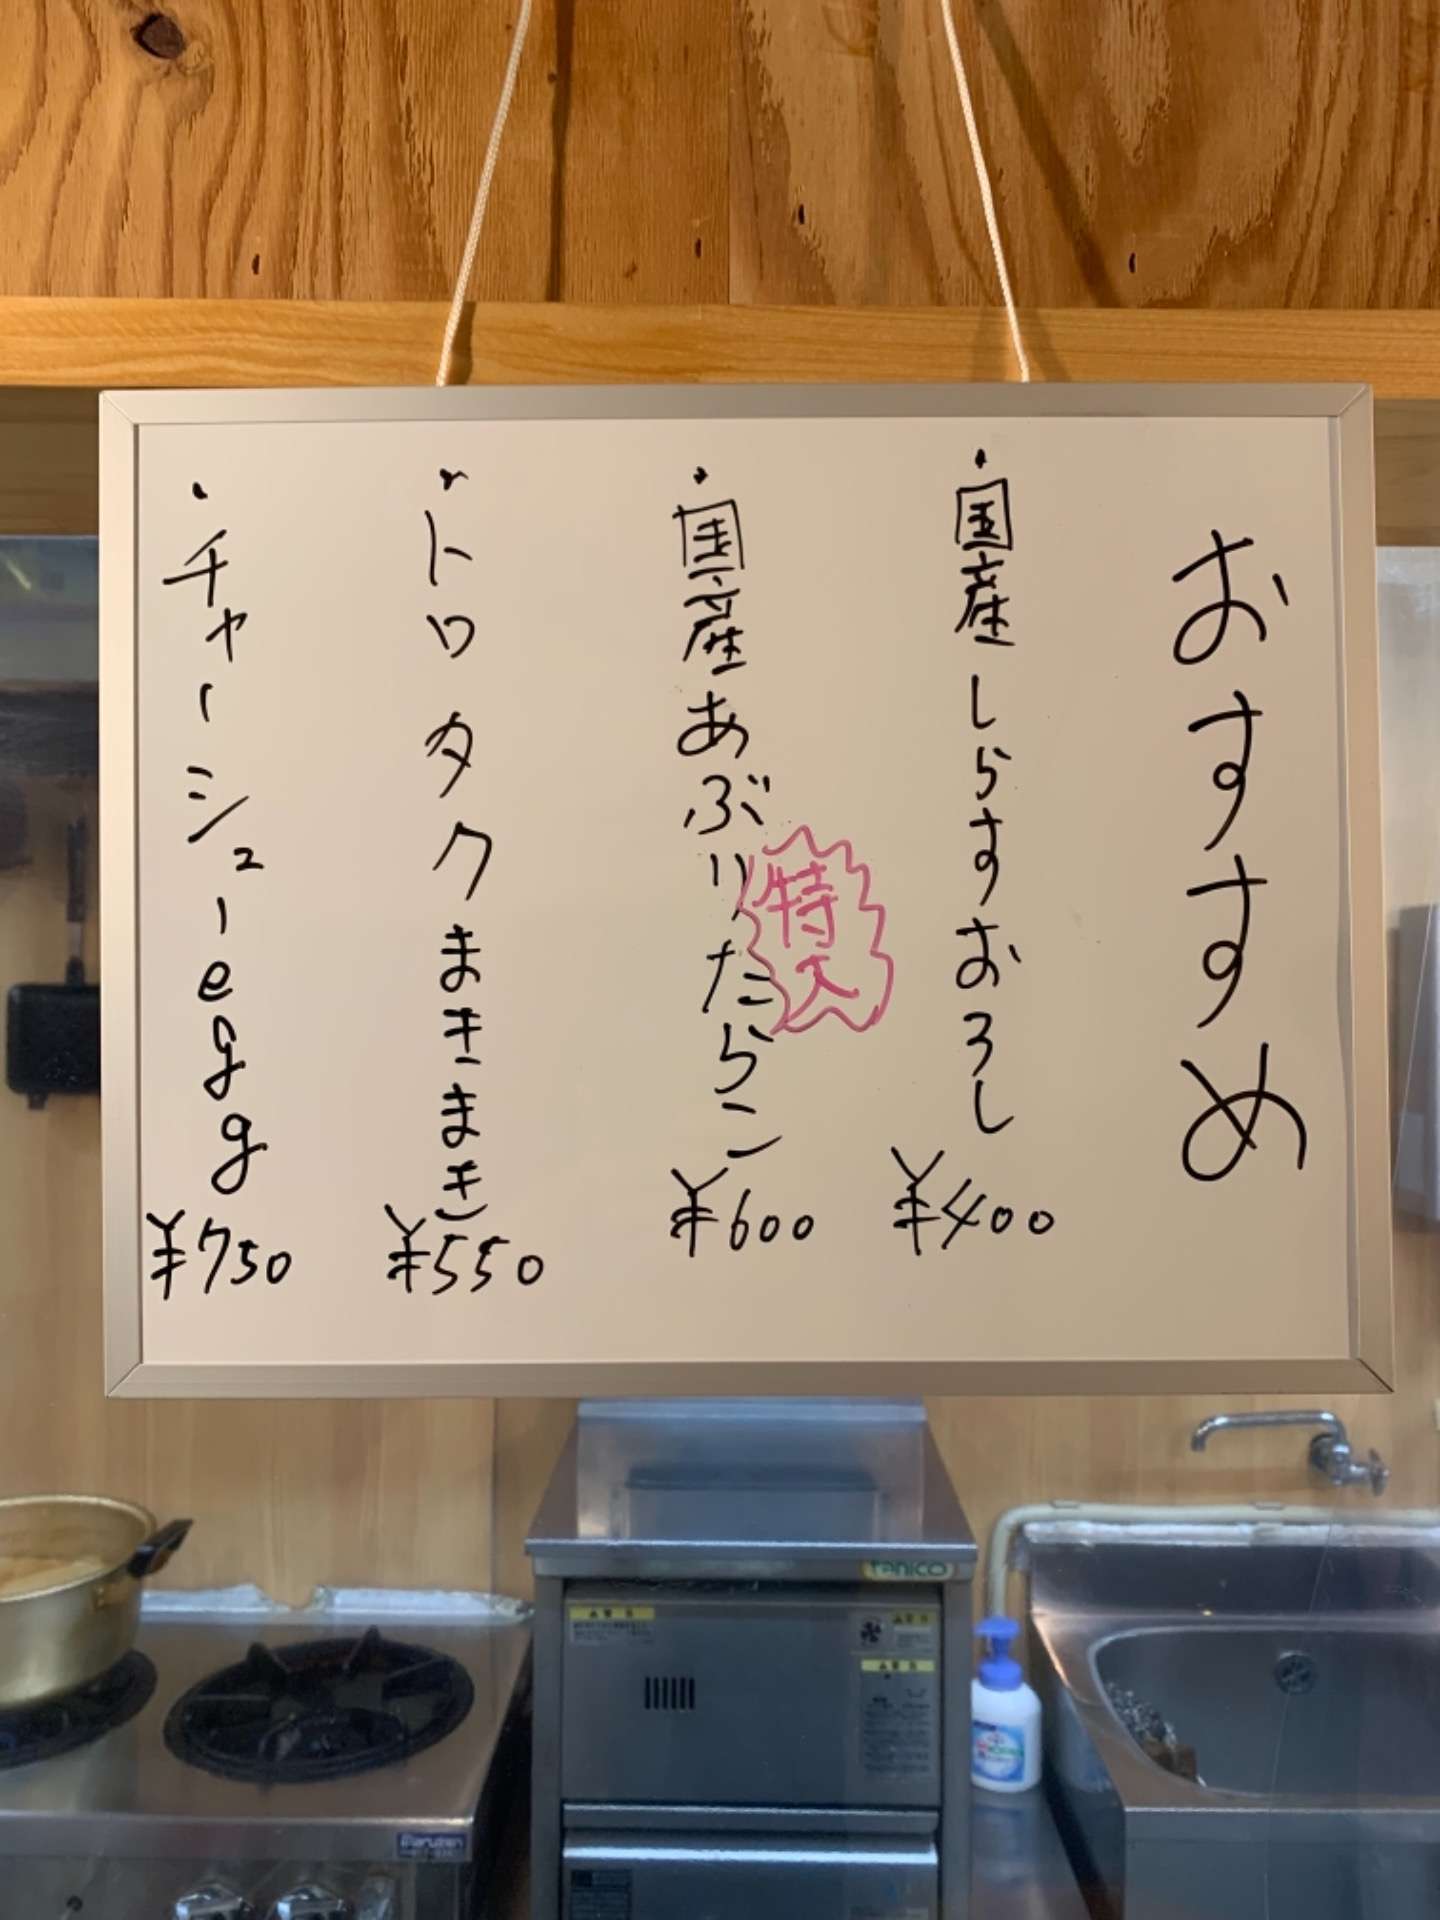 おすすめ
・国産しらすおろし
¥400
・国産あぶりたらこ
¥600
特大
・トロタクまきまき
¥550
・チャーシューegg
¥750
tanico
Maruzen